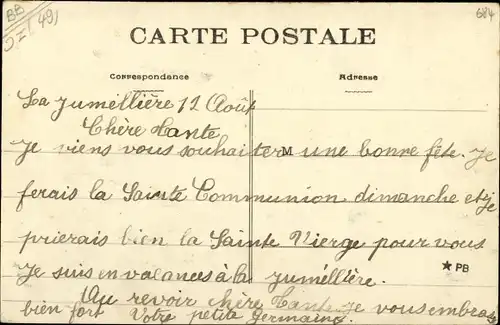 BB
5 I 491
684
CARTE POSTALE
Correspondance
Adresse
La Jumellière 12 Août
Chère Tante
Je viens vous souhaiter M une bonne fête. Je
ferais la Sainte Communion dimanche et je
prierais bien la Sainte Vierge pour vous
Je suis en vacances à la Jumellière.
★ PB
Au revoir chère Tante je vous embrasse
bien fort Votre petite Germaine.